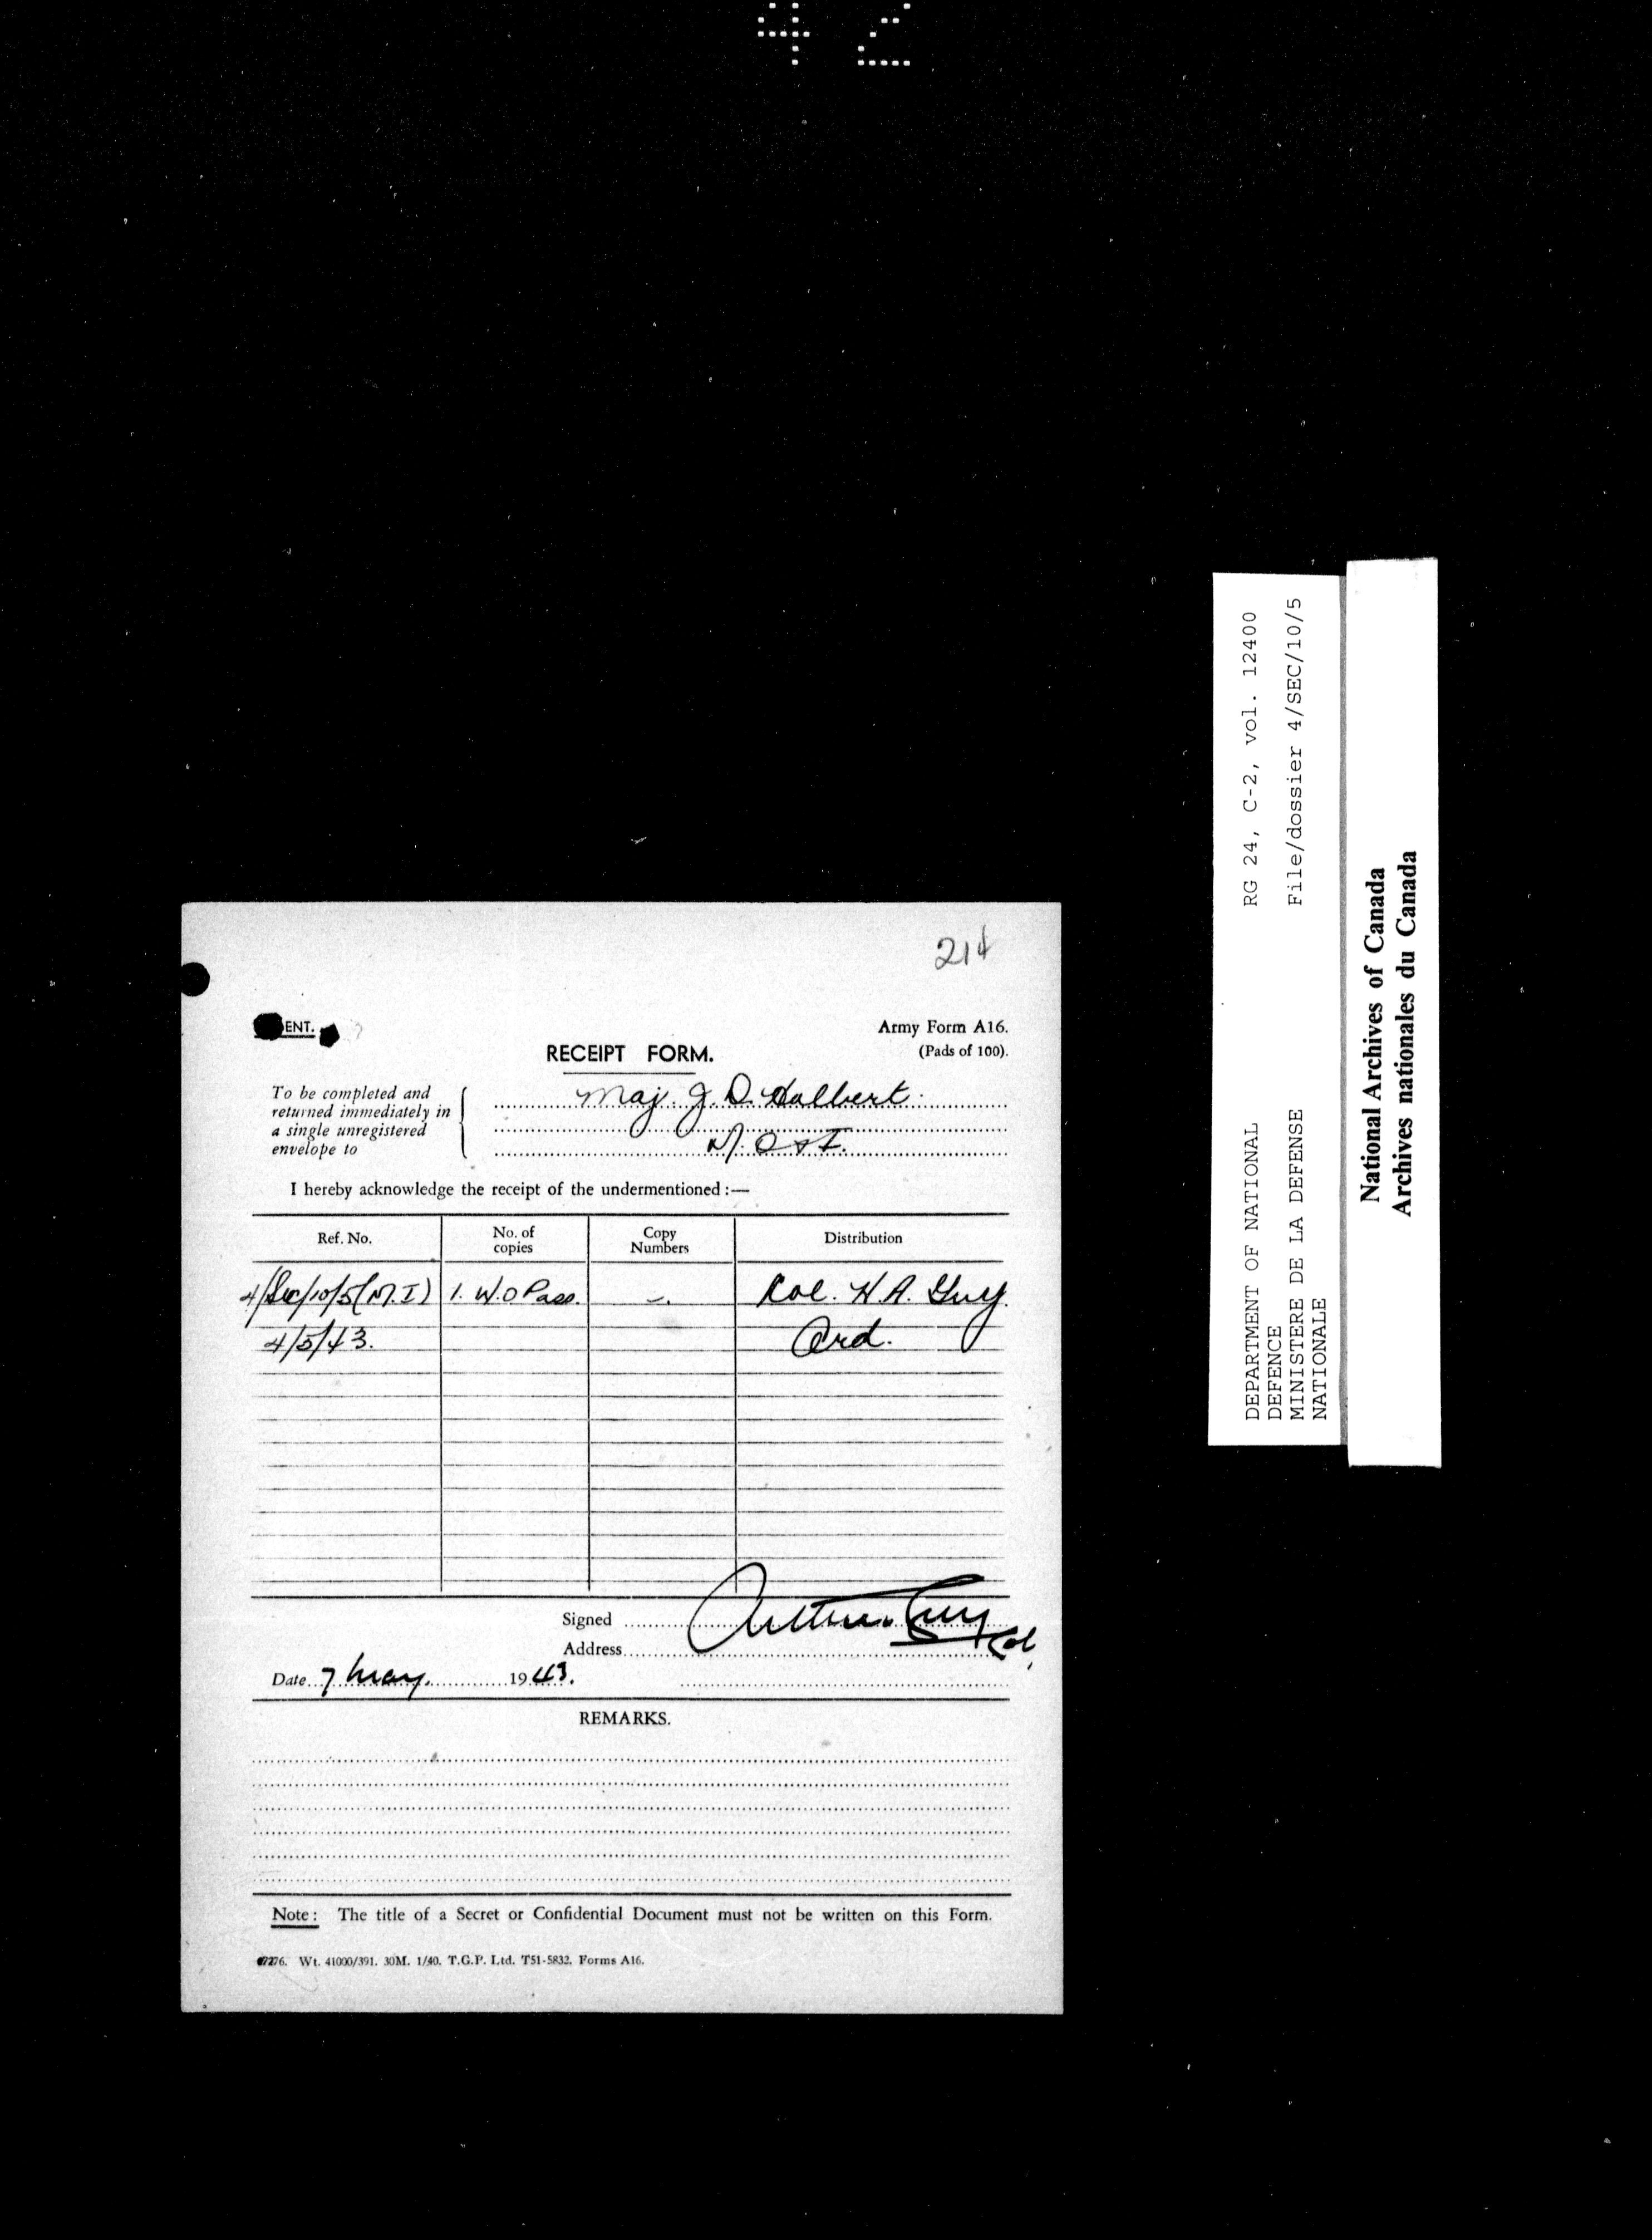 42
214
ENT.
Army Form A16.
(Pads of 100).
RECEIPT FORM.
To be completed and
returned immediately in
a single unregistered
envelope to
Maj. J. D. Halbert.
M. O & I.
I hereby acknowledge the receipt of the undermentioned :—
Ref. No. No. of copies Copy Numbers Distribution
4/Sec/10/5 (M.I) 1. W.O Pass. —. Col. H.A. Guy.
4/5/43. Ord.
Signed Arthur Guy
Address Col.
Date 7 May. 1943.
REMARKS.
Note : The title of a Secret or Confidential Document must not be written on this Form.
Wt. 41000/391. 30M. 1/40. T.G.P. Ltd. T51-5832. Forms A16.
DEPARTMENT OF NATIONAL
DEFENCE
MINISTERE DE LA DEFENSE
NATIONALE
RG 24, C-2, vol. 12400
File/dossier 4/SEC/10/5
National Archives of Canada
Archives nationales du Canada